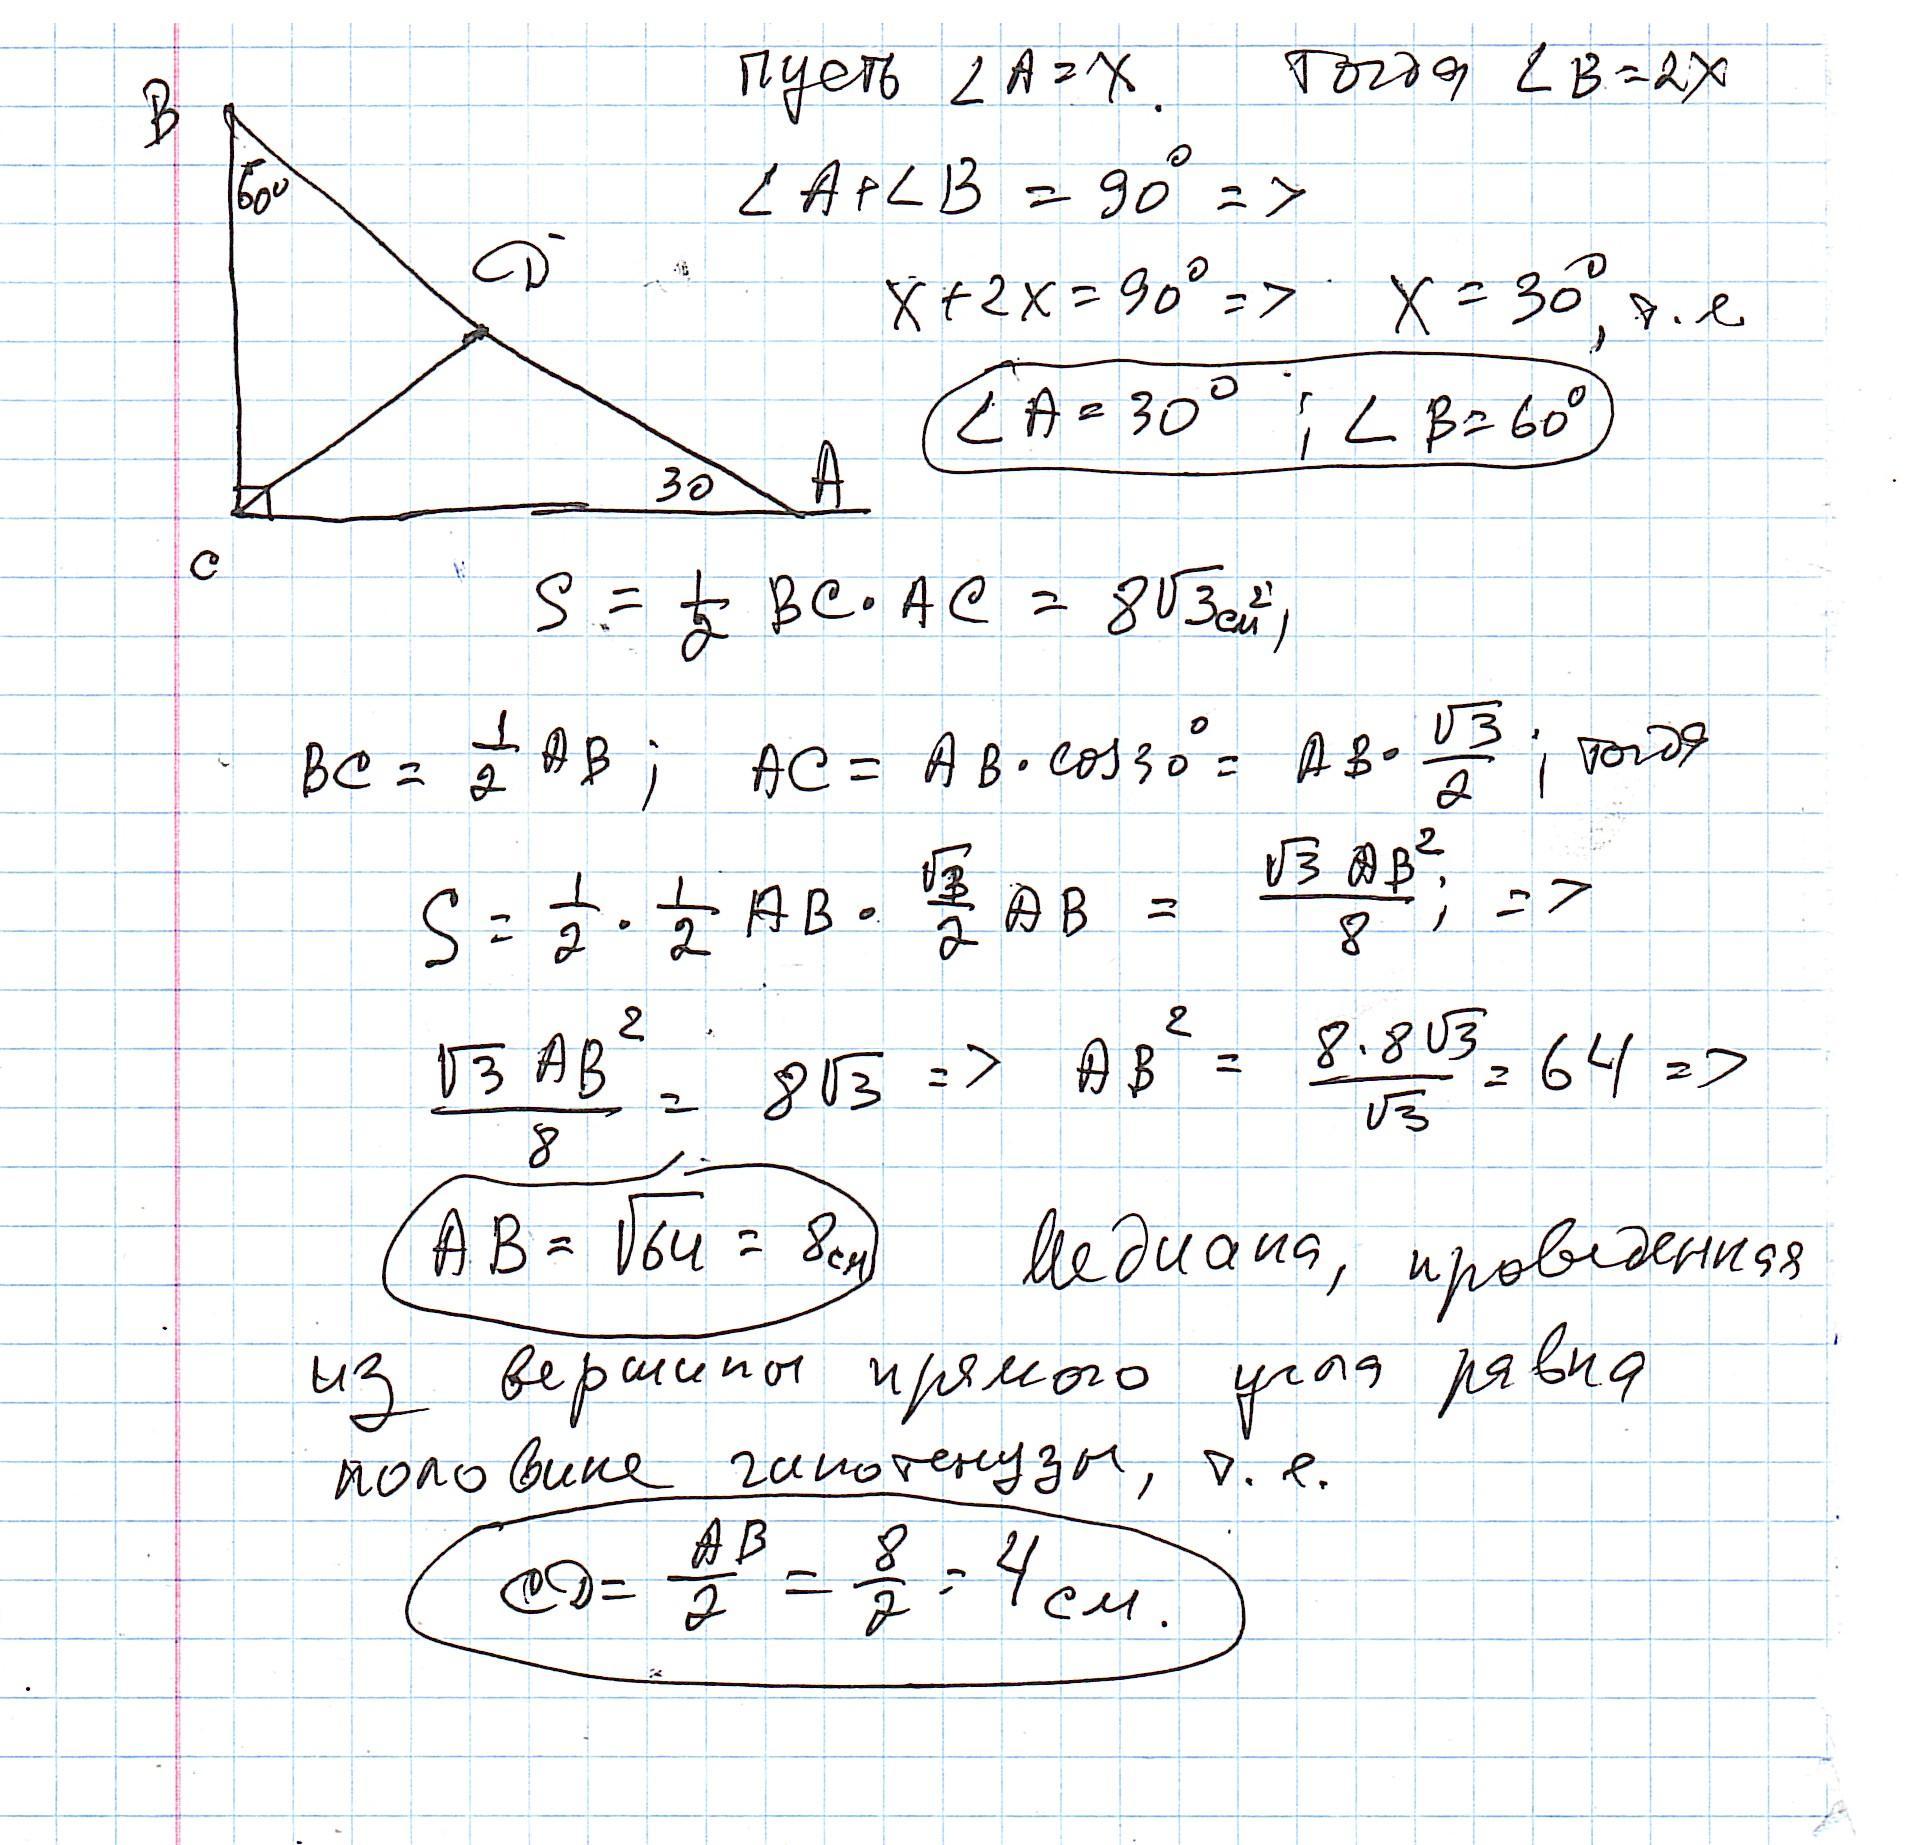 Пусть ∠A=x. Тогда ∠B=2x
B
60°
∠A+∠B = 90° =>
D
x+2x=90° => x=30°, т.е
∠A=30° ; ∠B=60°
30
A
C
S = 1/2 BC·AC = 8√3см²;
BC = 1/2 AB; AC = AB·cos30° = AB·√3/2; тогда
S = 1/2 · 1/2 AB · √3/2 AB = √3 AB²/8; =>
√3 AB²/8 = 8√3 => AB² = 8·8√3/√3 = 64 =>
AB = √64 = 8см Медиана, проведенная
из вершины прямого угла равна
половине гипотенузы, т.е.
CD = AB/2 = 8/2 = 4 см.